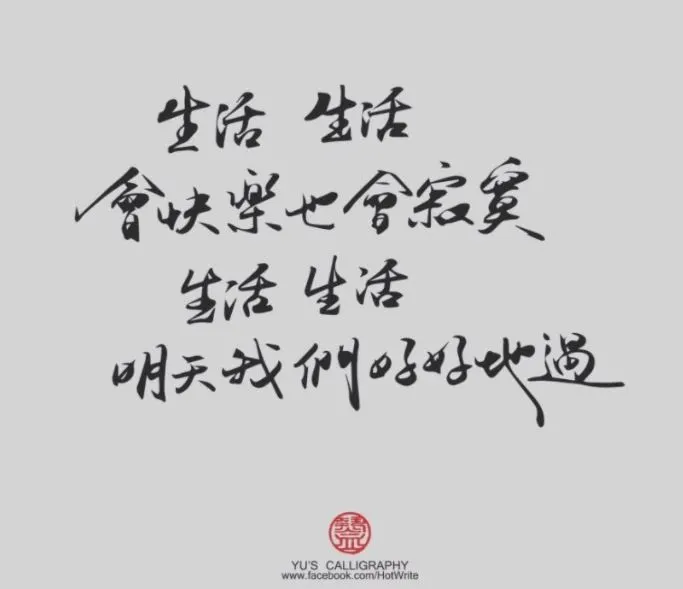 生活 生活
會快樂也會寂寞
生活 生活
明天我們好好地過
YU'S CALLIGRAPHY
www.facebook.com/HotWrite